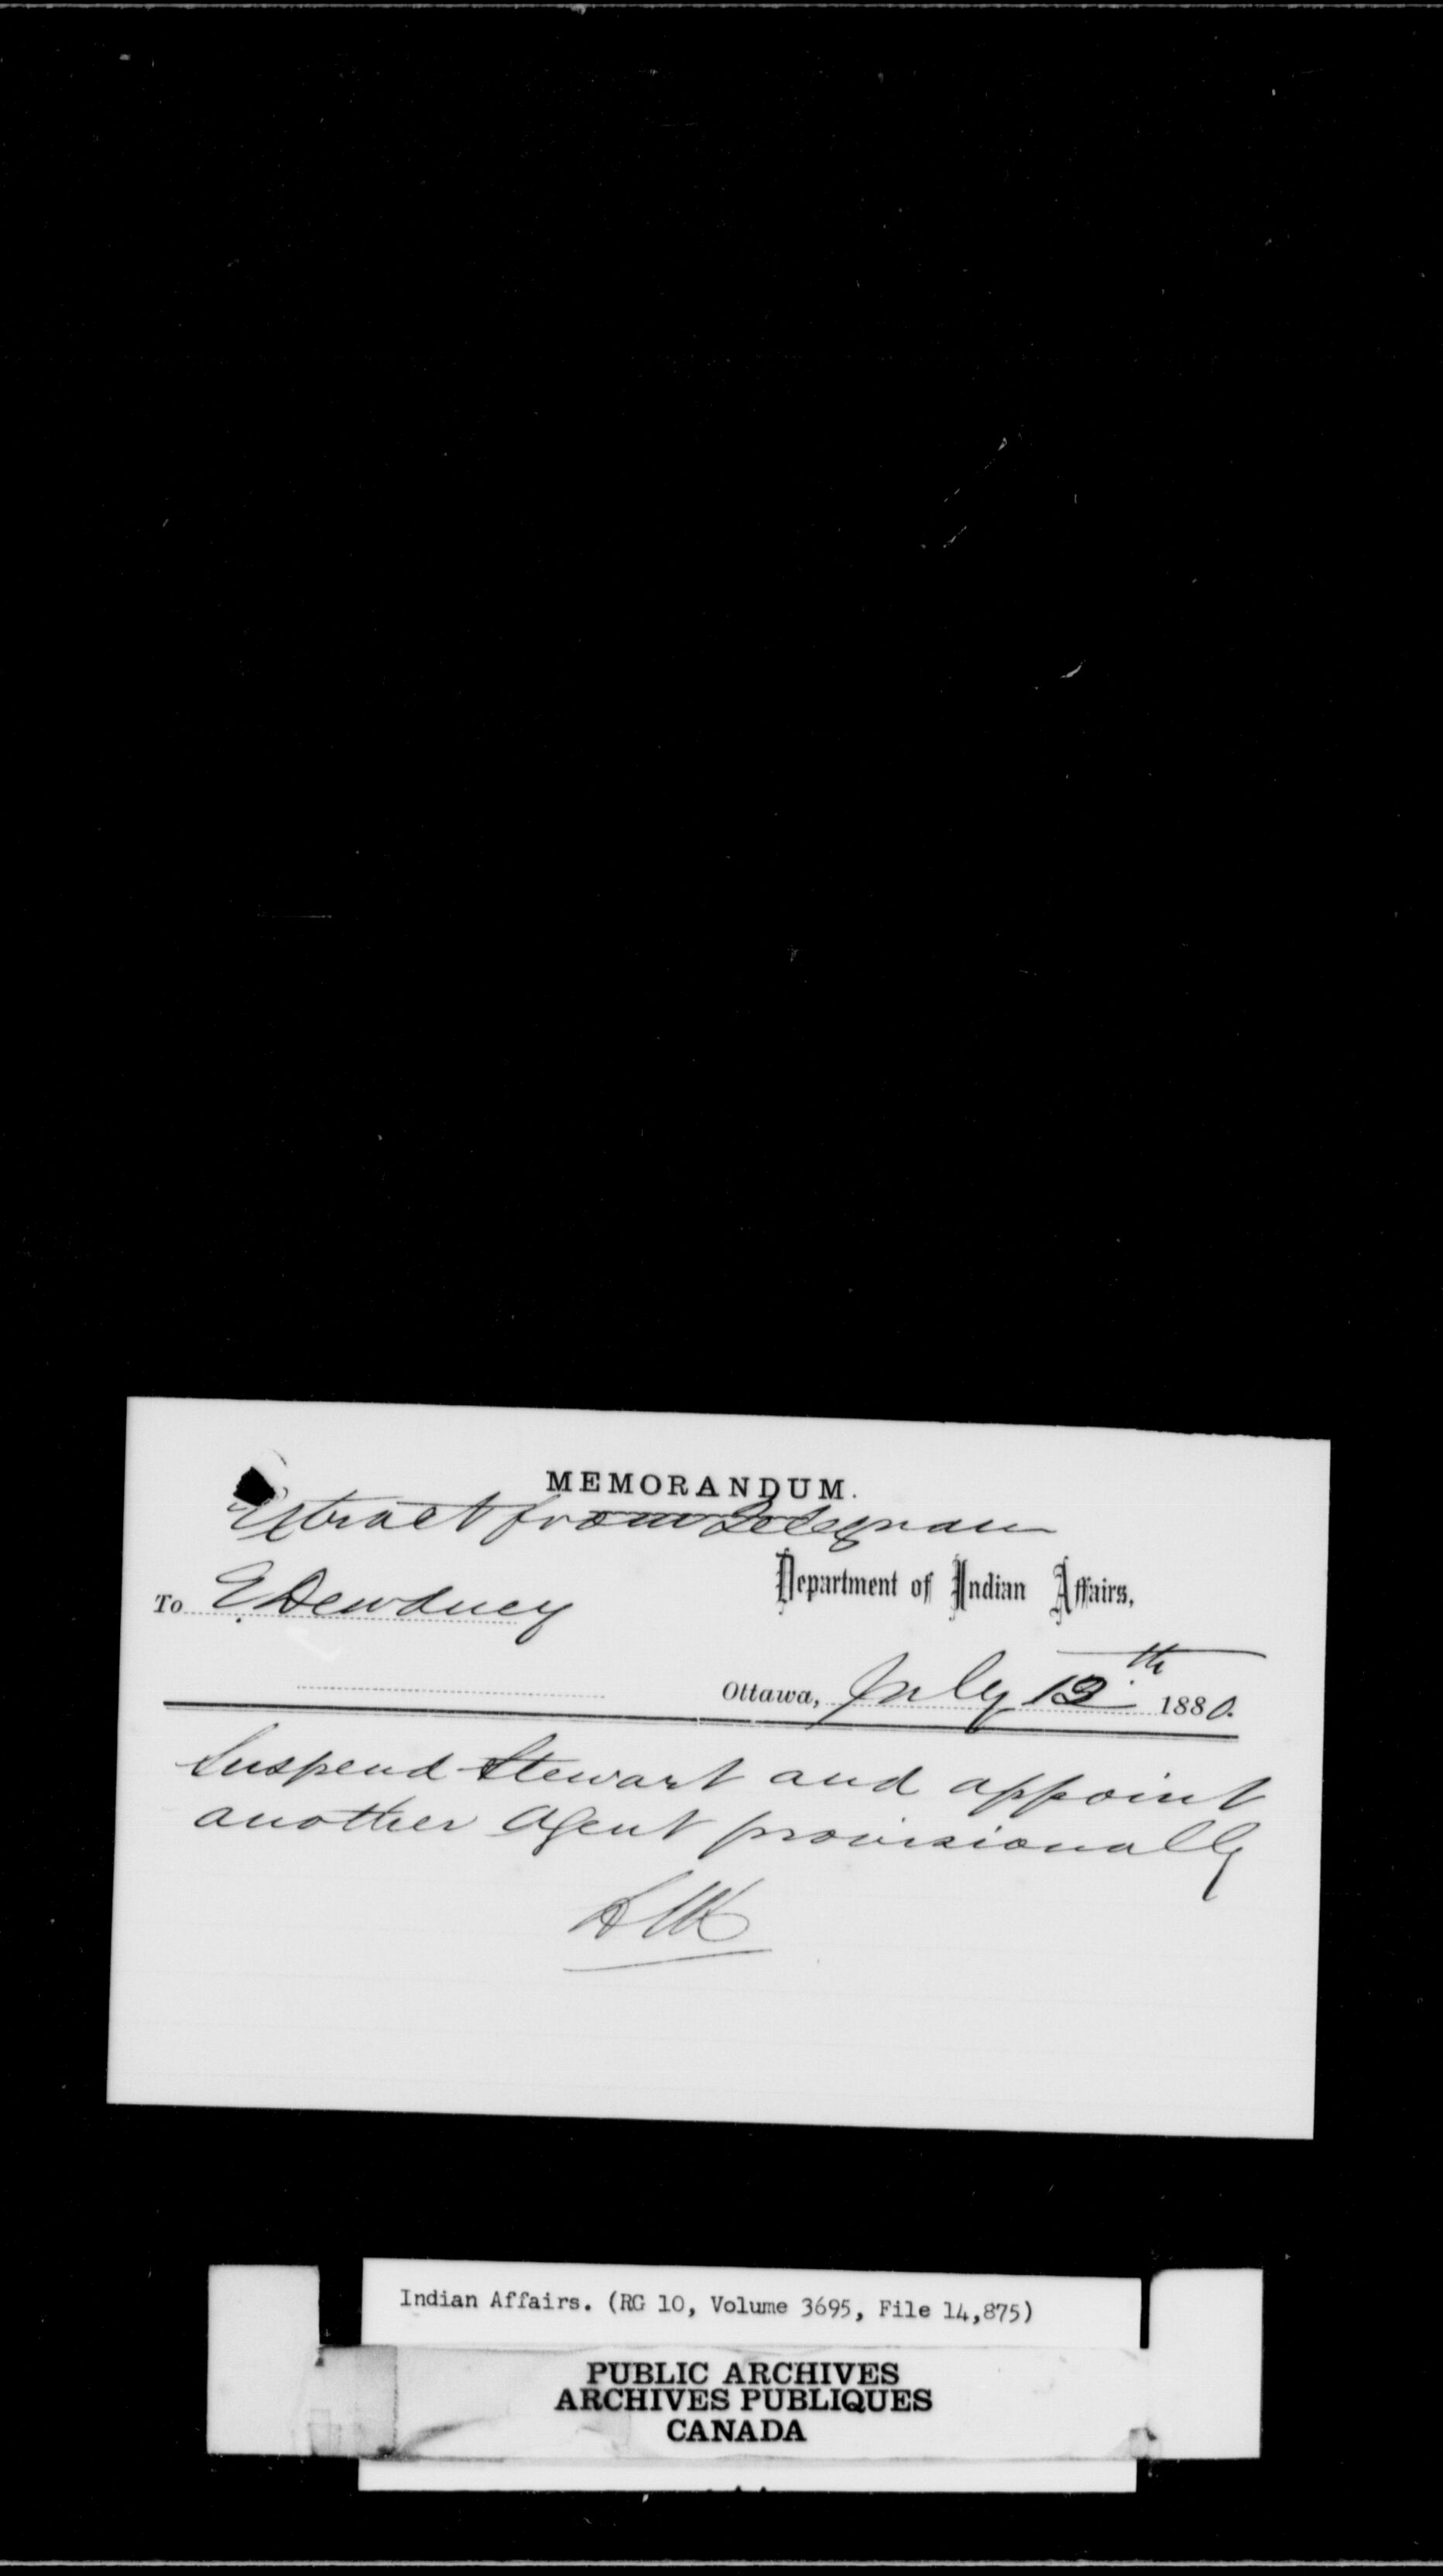 MEMORANDUM.
Extract from Telegram
Department of Indian Affairs,
To E. Dewdney
Ottawa, July 13th 1880.
Suspend Stewart and appoint
another Agent provisionally
Indian Affairs. (RG 10, Volume 3695, File 14,875)
PUBLIC ARCHIVES
ARCHIVES PUBLIQUES
CANADA